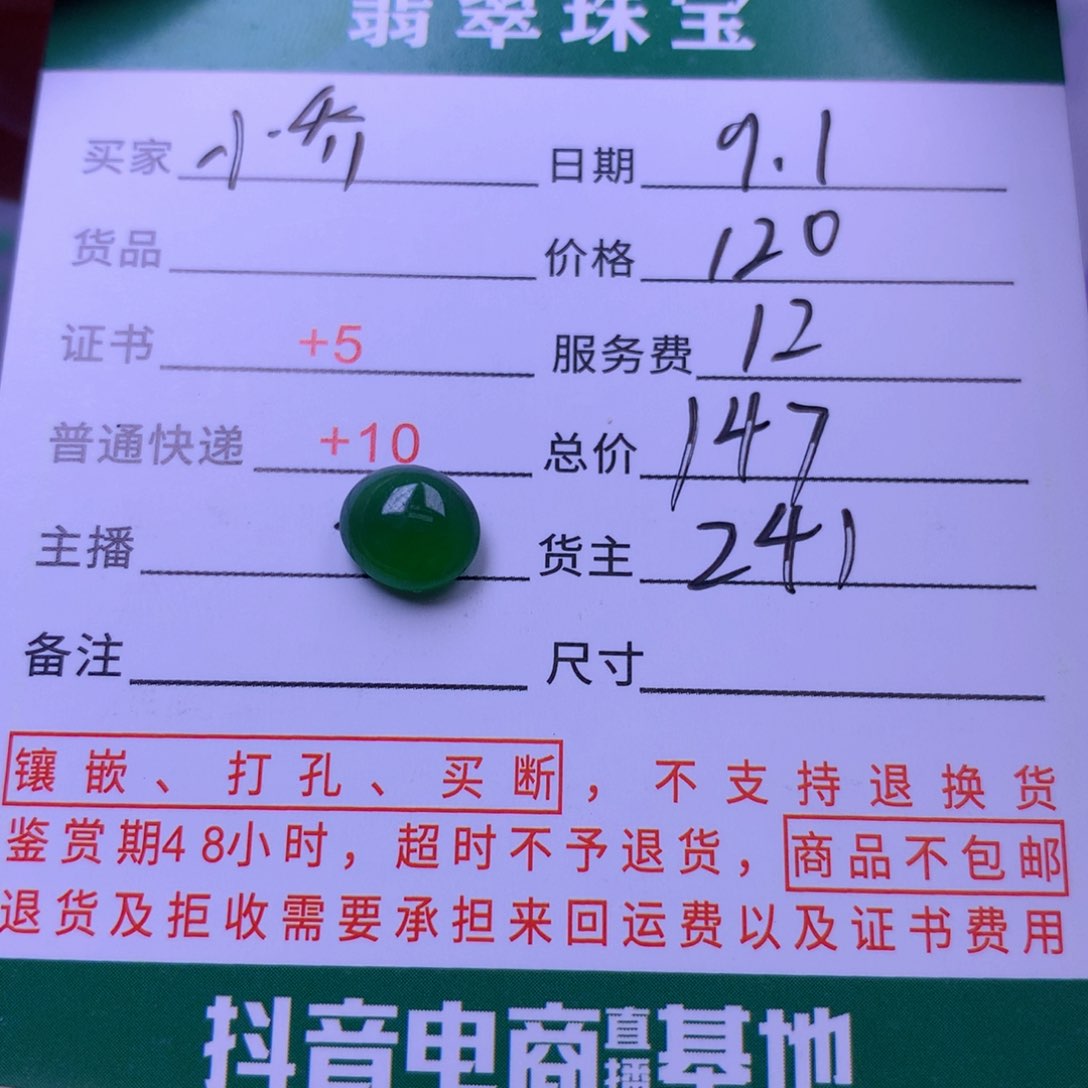 翡翠珠宝
买家 小乔 日期 9.1
货品 价格 120
证书 +5 服务费 12
普通快递 +10 总价 147
主播 货主 241
备注 尺寸
镶嵌、打孔、买断，不支持退换货
鉴赏期48小时，超时不予退货，商品不包邮
退货及拒收需要承担来回运费以及证书费用
抖音电商直播基地